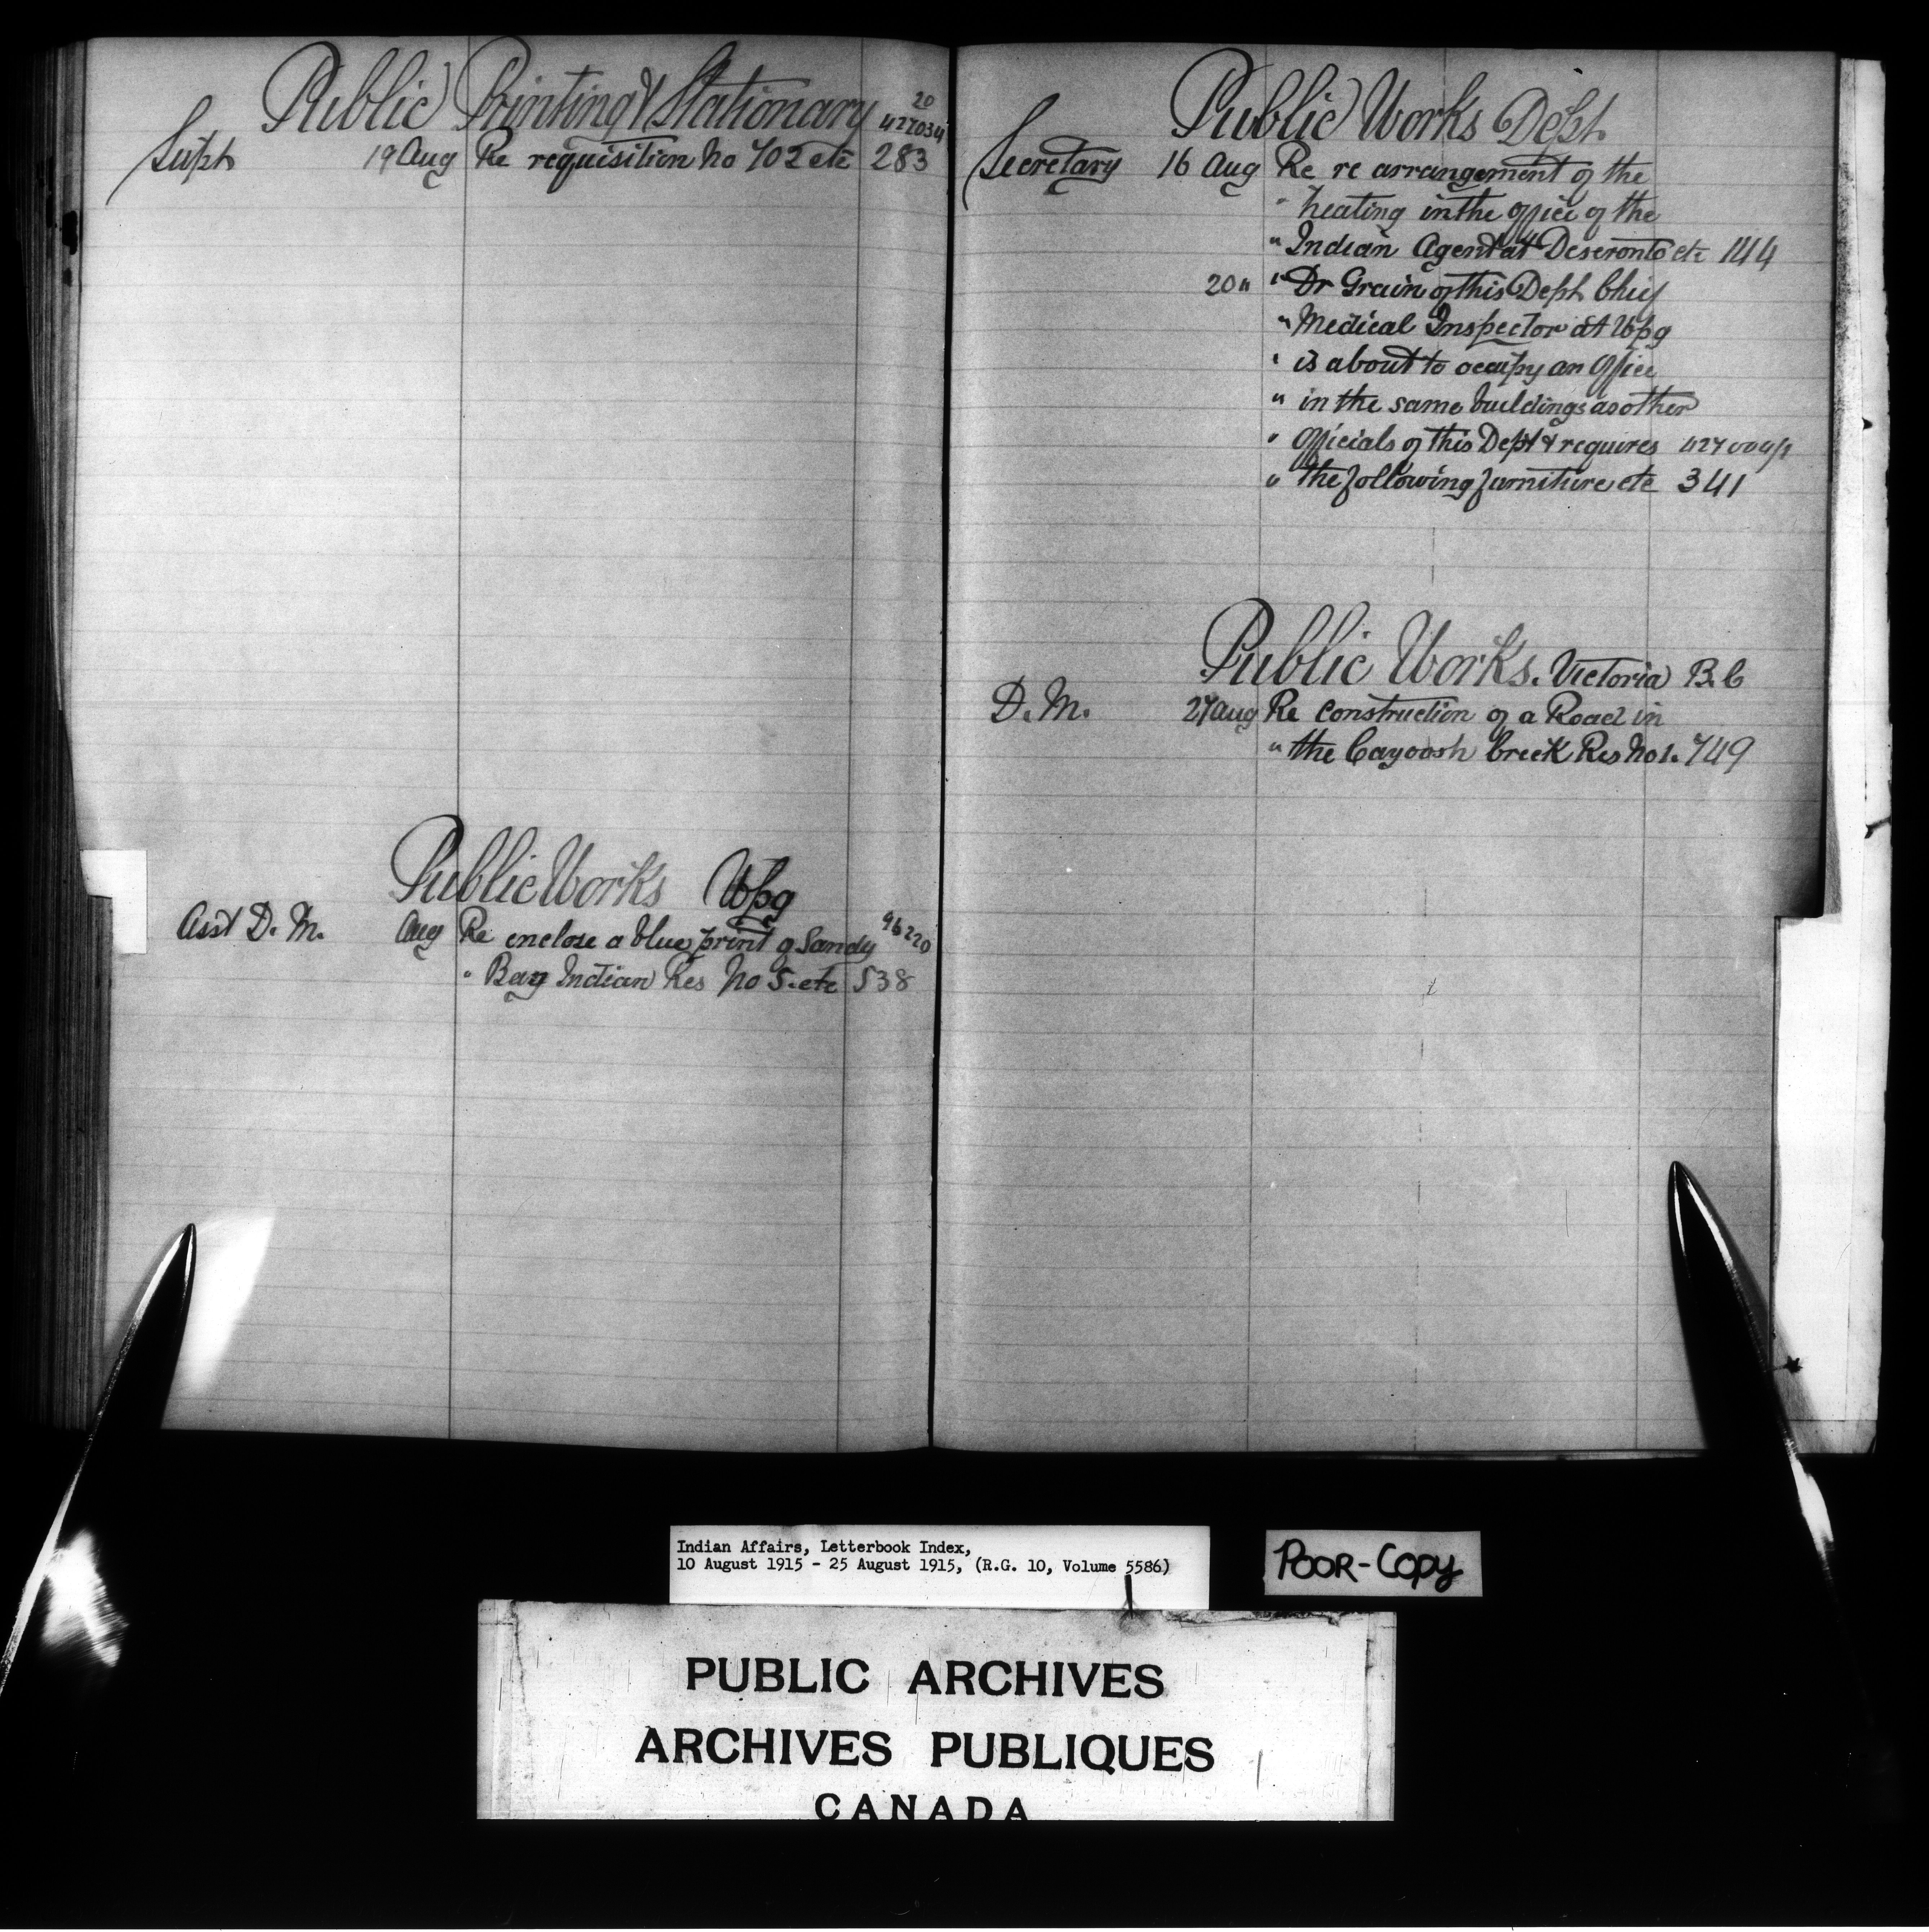 Public Printing & Stationary
20
427034
Supt 19 Aug Re requisition No 702 etc 283
Public Works Wpg
Asst D. M. Aug Re enclose a blue print of Sandy 96220
" Bay Indian Res No 5. etc 538
Public Works Dept
Secretary 16 Aug Re re arrangement of the
" heating in the office of the
" Indian Agent at Deseronto etc 144
20 " " Dr Grain of this Dept Chief
" Medical Inspector at Wpg
" is about to occupy an office
" in the same buildings as other
" officials of this Dept & requires
" the following furniture etc 341
Public Works. Victoria B.C
D. M. 27 Aug Re construction of a Road in
" the Cayoosh Creek Res No 1. 749
Indian Affairs, Letterbook Index,
10 August 1915 - 25 August 1915, (R.G. 10, Volume 5586)
POOR-COPY
PUBLIC ARCHIVES
ARCHIVES PUBLIQUES
CANADA